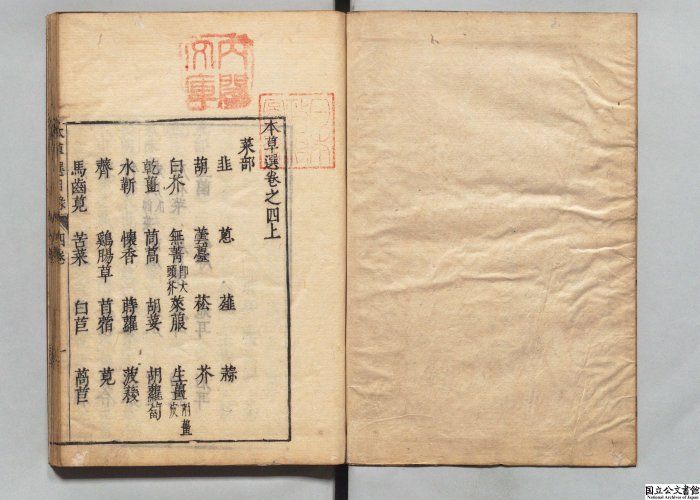 本草選卷之四上
菜部
韭 葱 薤 蒜
葫 蕓薹 菘 芥
白芥 蕪菁即大頭芥 萊服 生薑附薑皮
乾薑 茼蒿 胡荽 胡蘿蔔
水蘄 懷香 蒔蘿 菠薐
薺 鷄腸草 苜蓿 莧
馬齒莧 苦菜 白苣 萵苣
四卷
內閣文庫
国立公文書館
National Archives of Japan